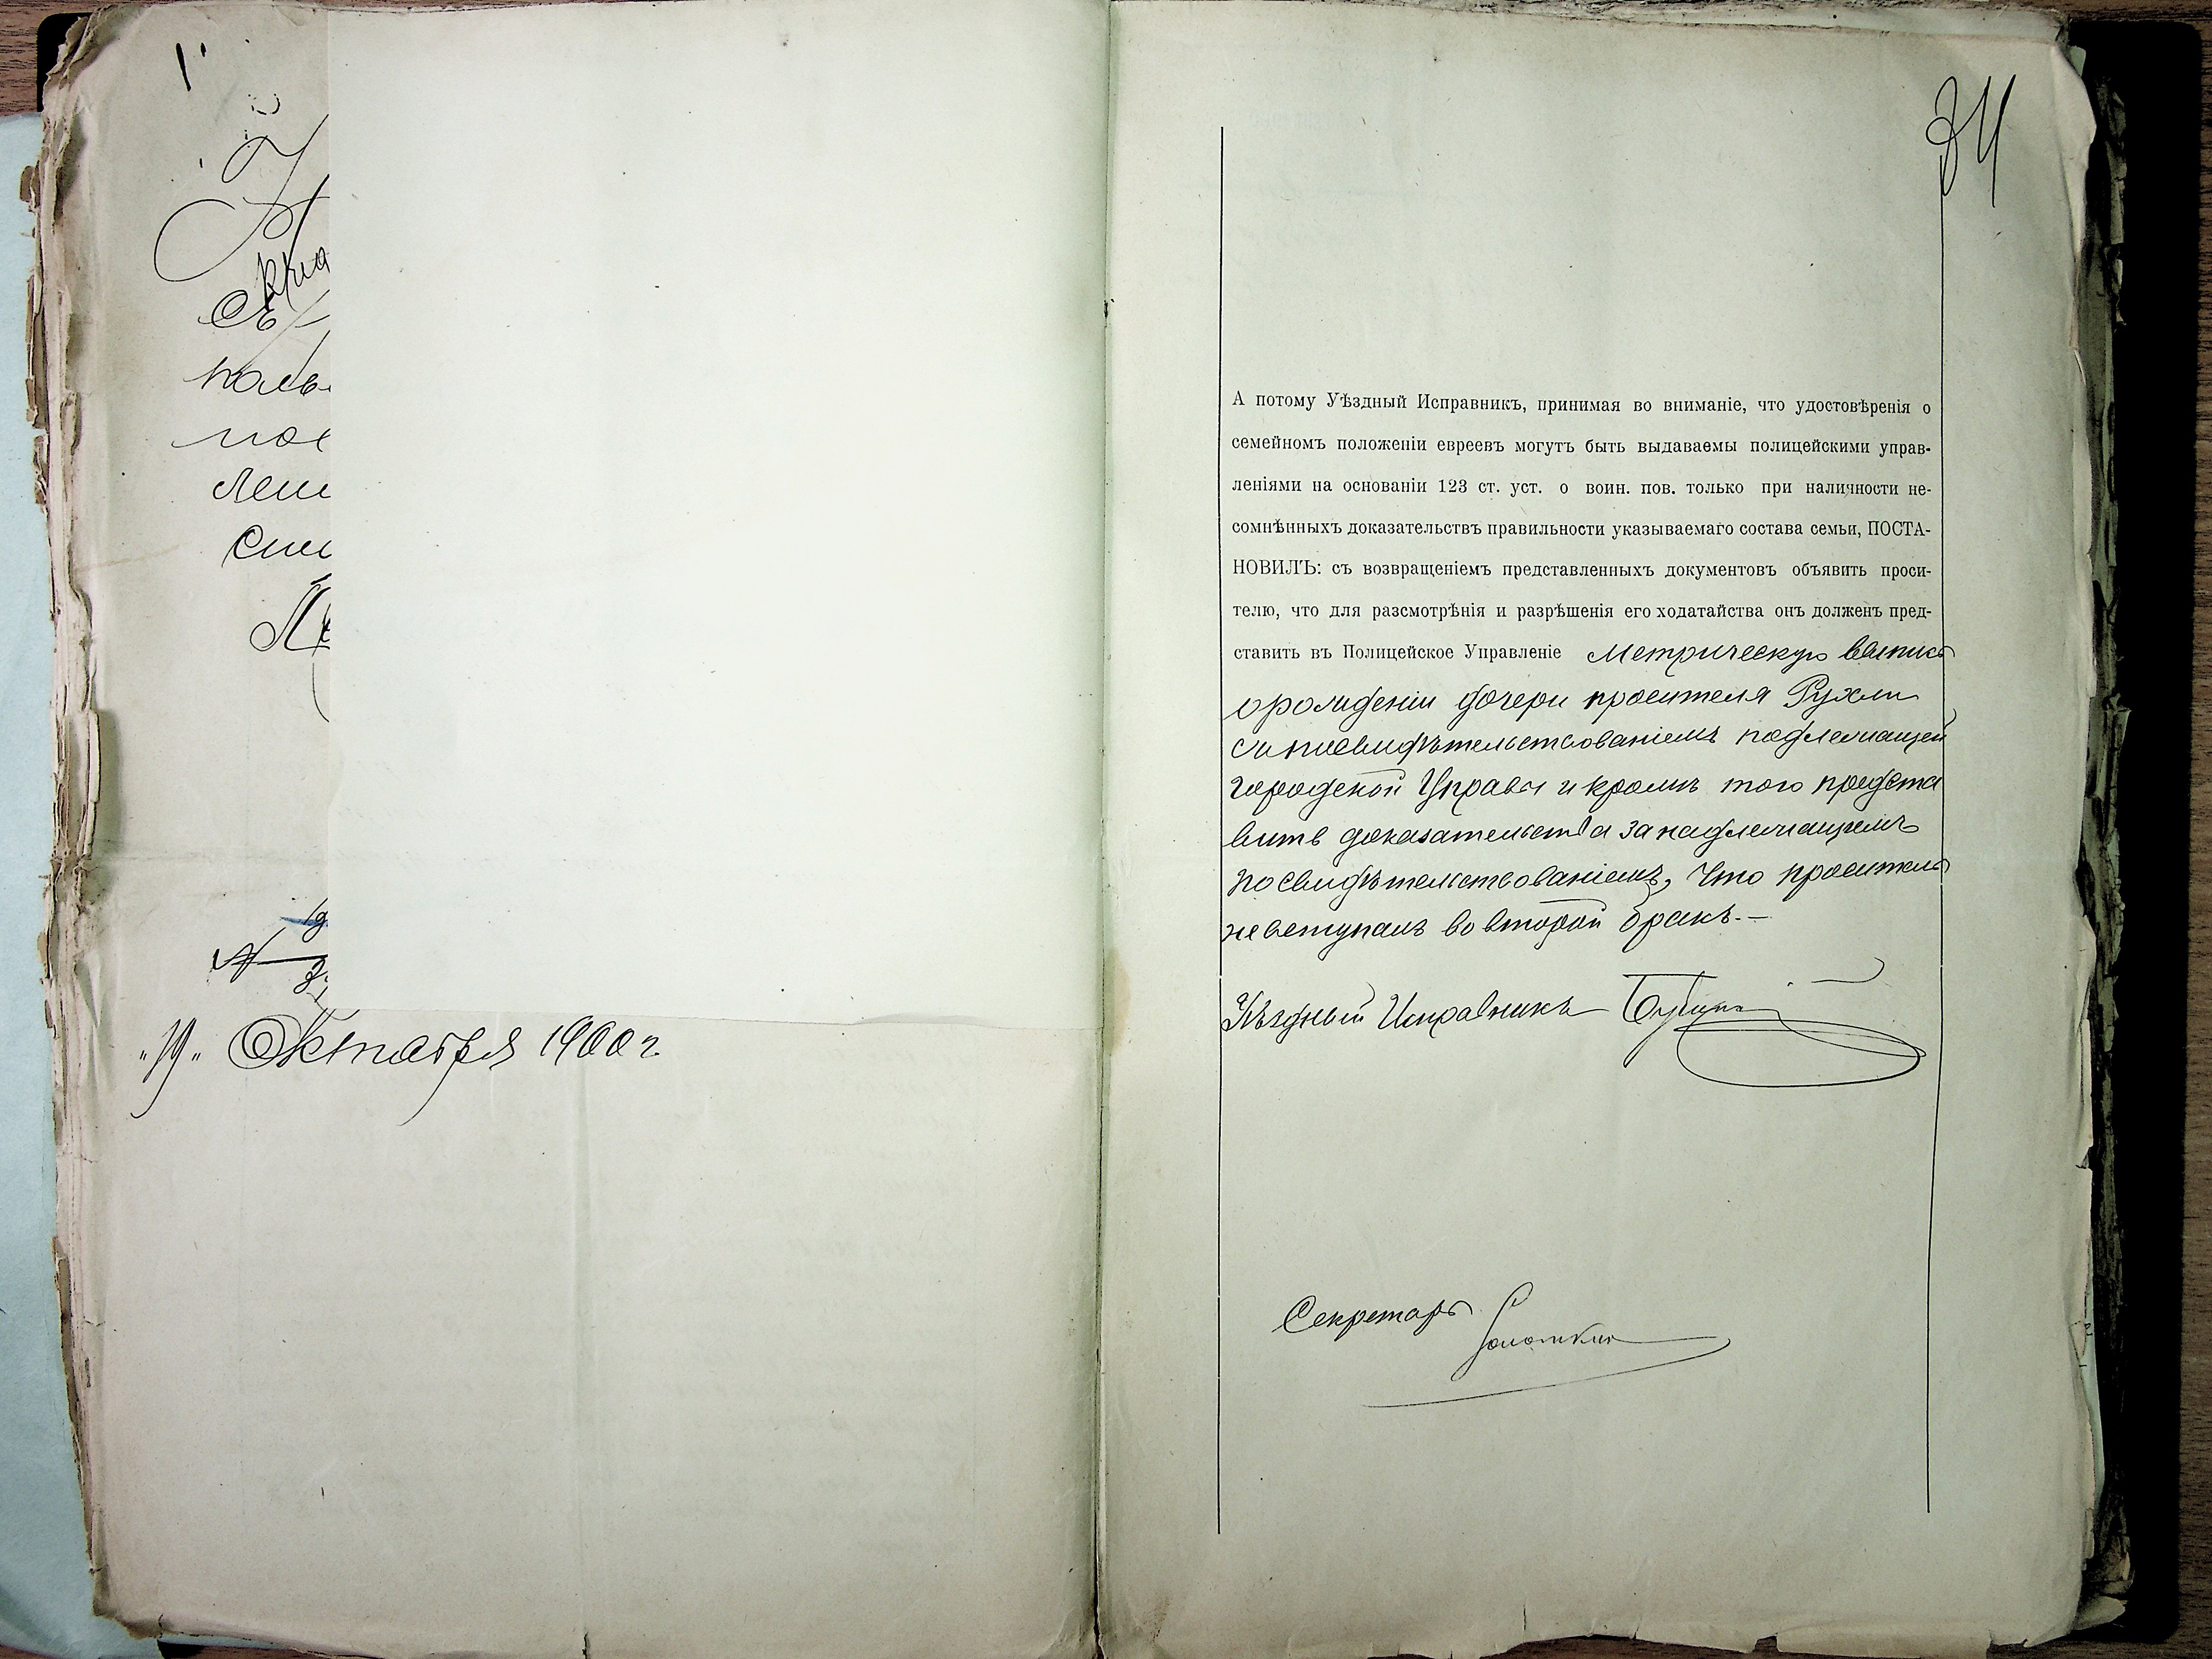 съ
поль
леш
"19" Октября 1900 г.
34
А потому Уѣздный Исправникъ, принимая во вниманіе, что удостовѣренія о
семейномъ положеніи евреевъ могутъ быть выдаваемы полицейскими управ-
леніями на основаніи 123 ст. уст. о воин. пов. только при наличности не-
сомнѣнныхъ доказательствъ правильности указываемаго состава семьи, ПОСТА-
НОВИЛЪ: съ возвращеніемъ представленныхъ документовъ объявить проси-
телю, что для разсмотрѣнія и разрѣшенія его ходатайства онъ долженъ пред-
ставить въ Полицейское Управленіе Метрическую выпись
о рожденіи дочери просителя Рухли
надлежащей
городской Управы и кромѣ того предста
вить доказательства за надлежащимъ
посвидѣтельствованіемъ, что проситель
не вступалъ во второй бракъ.-
Уѣздный Исправникъ
Секретарь